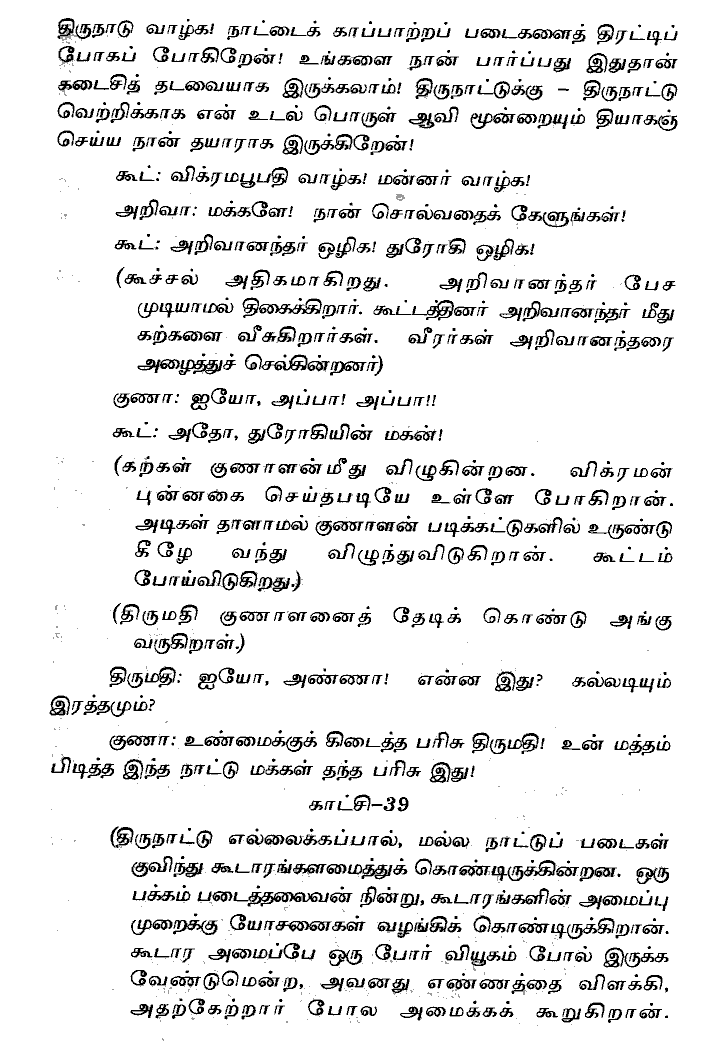 திருநாடு வாழ்க! நாட்டைக் காப்பாற்றப் படைகளைத் திரட்டிப்
போகப் போகிறேன்! உங்களை நான் பார்ப்பது இதுதான்
கடைசித் தடவையாக இருக்கலாம்! திருநாட்டுக்கு – திருநாட்டு
வெற்றிக்காக என் உடல் பொருள் ஆவி மூன்றையும் தியாகஞ்
செய்ய நான் தயாராக இருக்கிறேன்!
கூட்: விக்ரமபூபதி வாழ்க! மன்னர் வாழ்க!
அறிவா: மக்களே! நான் சொல்வதைக் கேளுங்கள்!
கூட்: அறிவானந்தர் ஒழிக! துரோகி ஒழிக!
(கூச்சல் அதிகமாகிறது. அறிவானந்தர் பேச
முடியாமல் திகைக்கிறார். கூட்டத்தினர் அறிவானந்தர் மீது
கற்களை வீசுகிறார்கள். வீரர்கள் அறிவானந்தரை
அழைத்துச் செல்கின்றனர்)
குணா: ஐயோ, அப்பா! அப்பா!!
கூட்: அதோ, துரோகியின் மகன்!
(கற்கள் குணாளன்மீது விழுகின்றன. விக்ரமன்
புன்னகை செய்தபடியே உள்ளே போகிறான்.
அடிகள் தாளாமல் குணாளன் படிக்கட்டுகளில் உருண்டு
கீழே வந்து விழுந்துவிடுகிறான். கூட்டம்
போய்விடுகிறது.)
(திருமதி குணாளனைத் தேடிக் கொண்டு அங்கு
வருகிறாள்.)
திருமதி: ஐயோ, அண்ணா! என்ன இது? கல்லடியும்
இரத்தமும்?
குணா: உண்மைக்குக் கிடைத்த பரிசு திருமதி! உன் மத்தம்
பிடித்த இந்த நாட்டு மக்கள் தந்த பரிசு இது!
காட்சி–39
(திருநாட்டு எல்லைக்கப்பால், மல்ல நாட்டுப் படைகள்
குவிந்து கூடாரங்களமைத்துக் கொண்டிருக்கின்றன. ஒரு
பக்கம் படைத்தலைவன் நின்று, கூடாரங்களின் அமைப்பு
முறைக்கு யோசனைகள் வழங்கிக் கொண்டிருக்கிறான்.
கூடார அமைப்பே ஒரு போர் வியூகம் போல் இருக்க
வேண்டுமென்ற, அவனது எண்ணத்தை விளக்கி,
அதற்கேற்றார் போல அமைக்கக் கூறுகிறான்.